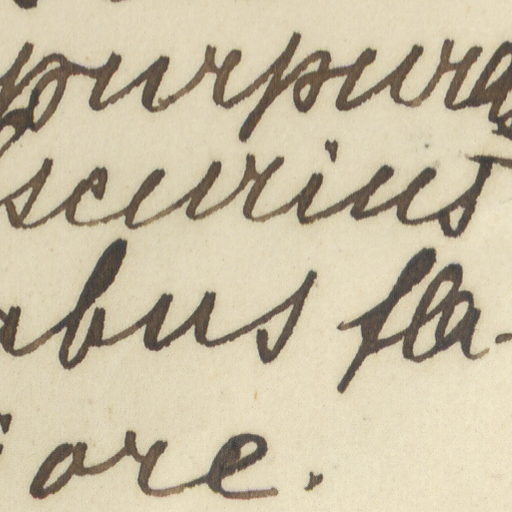 purpura
scurius
abus fla-
ore.